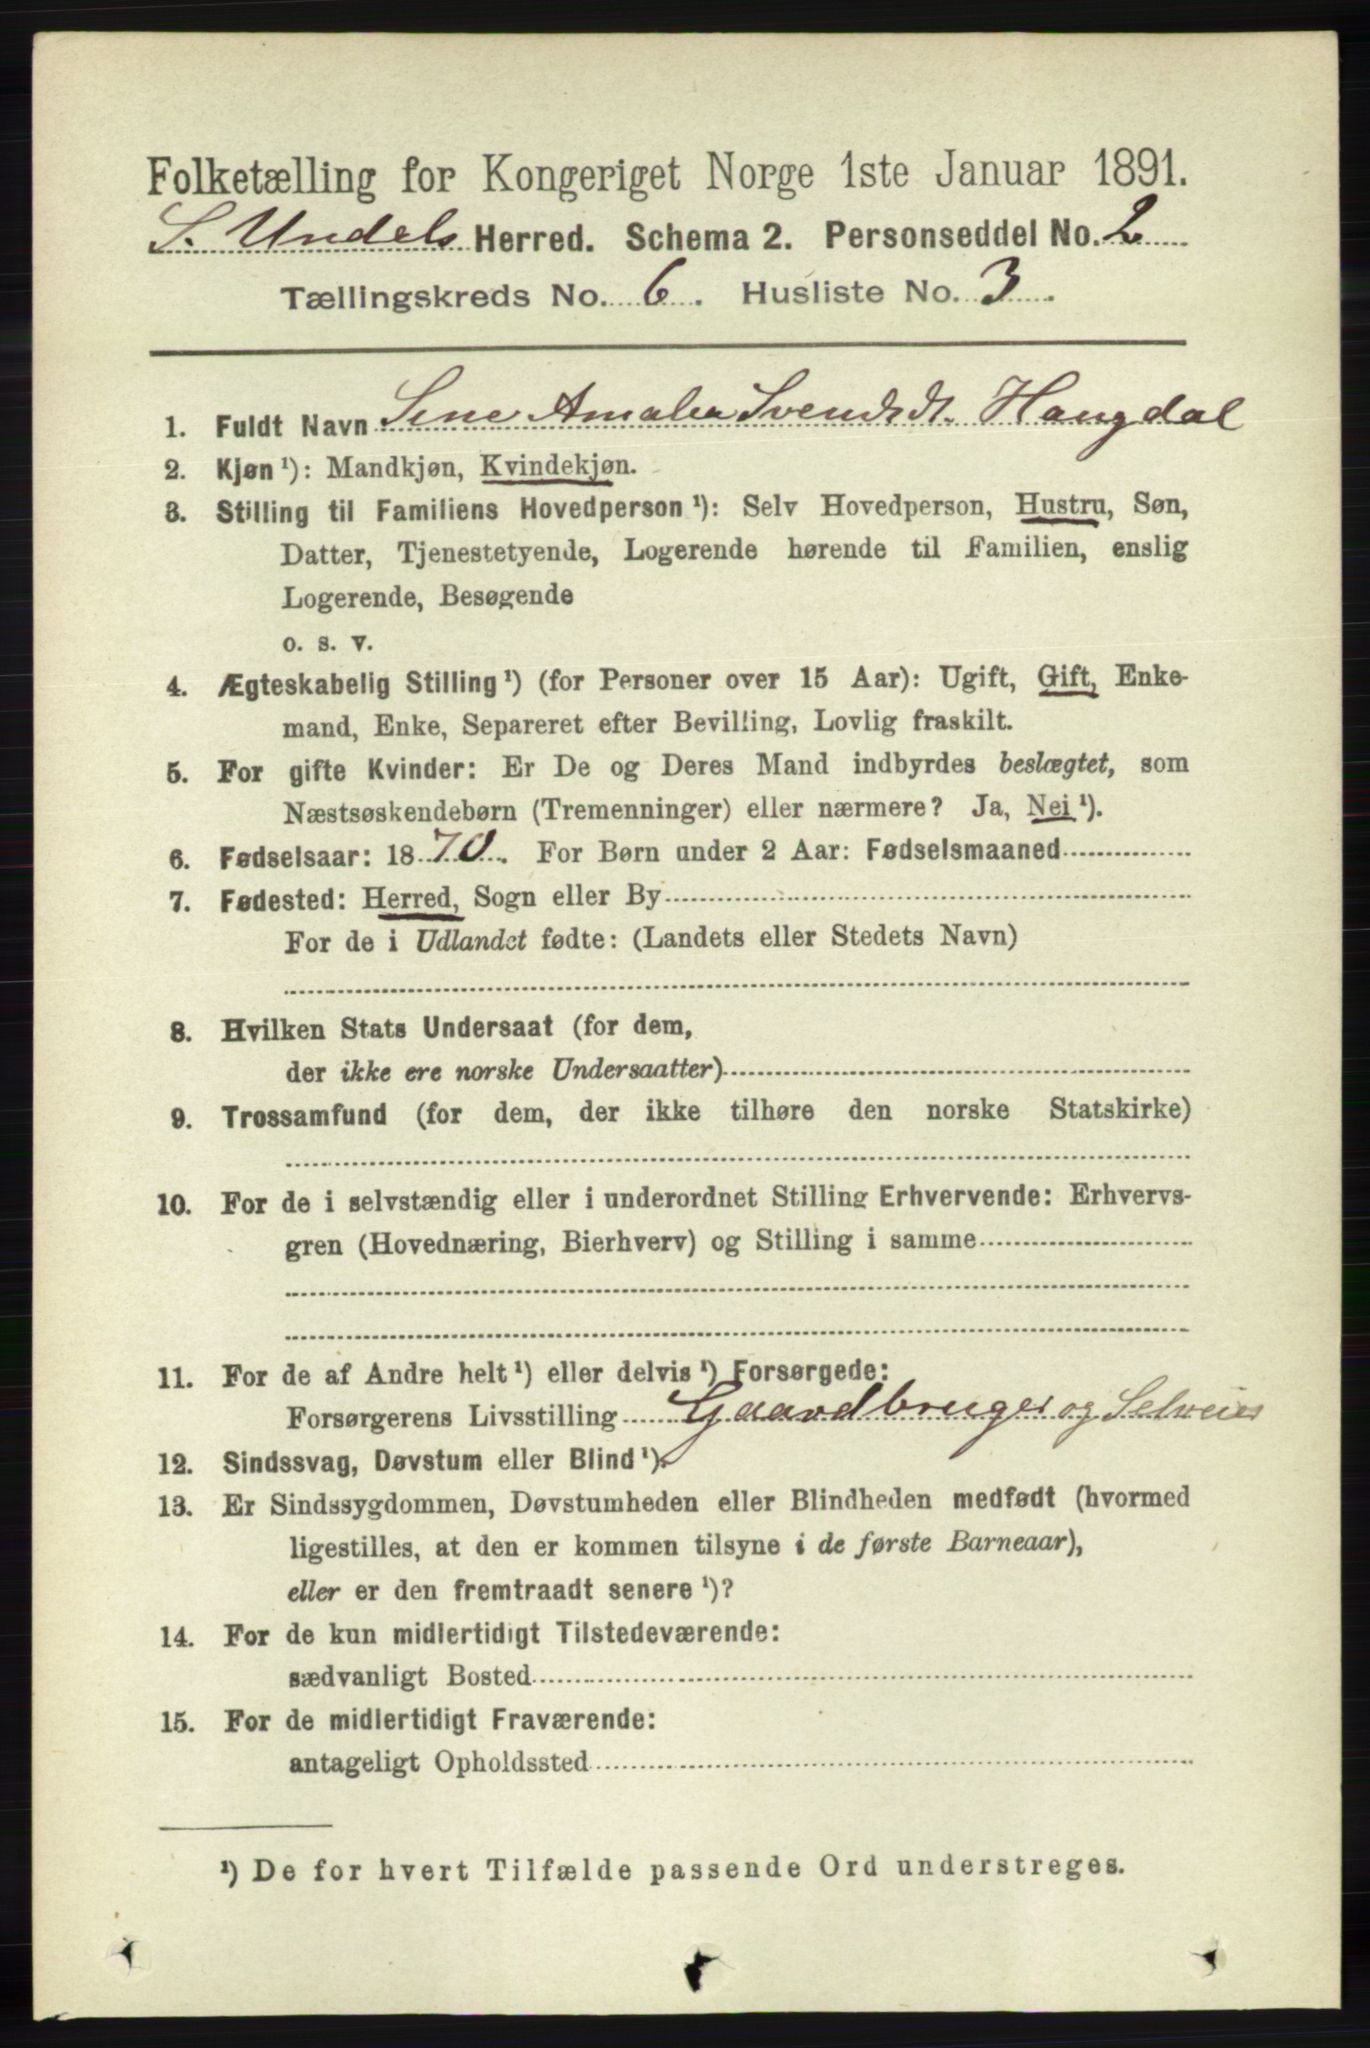 Folketælling for Kongeriget Norge 1ste Januar 1891.
S. Undals Herred. Schema 2. Personseddel No. 2
Tællingskreds No. 6. Husliste No. 3.
1. Fuldt Navn Sine Amalia Svendsdt. Haugdal
2. Kjøn ¹): Mandkjøn, Kvindekjøn.
3. Stilling til Familiens Hovedperson ¹): Selv Hovedperson, Hustru, Søn,
Datter, Tjenestetyende, Logerende hørende til Familien, enslig
Logerende, Besøgende
o. s. v.
4. Ægteskabelig Stilling ¹) (for Personer over 15 Aar): Ugift, Gift, Enke-
mand, Enke, Separeret efter Bevilling, Lovlig fraskilt.
5. For gifte Kvinder: Er De og Deres Mand indbyrdes beslægtet, som
Næstsøskendebørn (Tremenninger) eller nærmere? Ja, Nei ¹).
6. Fødselsaar: 1870. For Børn under 2 Aar: Fødselsmaaned
7. Fødested: Herred, Sogn eller By
For de i Udlandet fødte: (Landets eller Stedets Navn)
8. Hvilken Stats Undersaat (for dem,
der ikke ere norske Undersaatter)
9. Trossamfund (for dem, der ikke tilhøre den norske Statskirke)
10. For de i selvstændig eller i underordnet Stilling Erhvervende: Erhvervs-
gren (Hovednæring, Bierhverv) og Stilling i samme
11. For de af Andre helt ¹) eller delvis ¹) Forsørgede:
Forsørgerens Livsstilling Gaardbruger og Selveier
12. Sindssvag, Døvstum eller Blind ¹).
13. Er Sindssygdommen, Døvstumheden eller Blindheden medfødt (hvormed
ligestilles, at den er kommen tilsyne i de første Barneaar),
eller er den fremtraadt senere ¹)?
14. For de kun midlertidigt Tilstedeværende:
sædvanligt Bosted
15. For de midlertidigt Fraværende:
antageligt Opholdssted
¹) De for hvert Tilfælde passende Ord understreges.